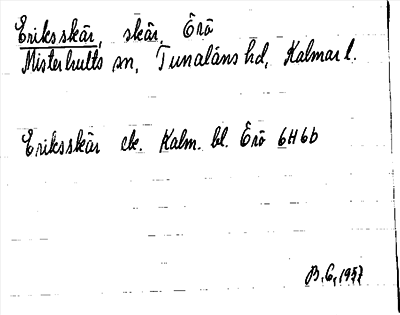 Eriksskär, skär, Örö
Misterhults sn, Tunaläns hd, Kalmar l.
Eriksskär ek. Kalm. bl. Örö 6H6b
B.G. 1957